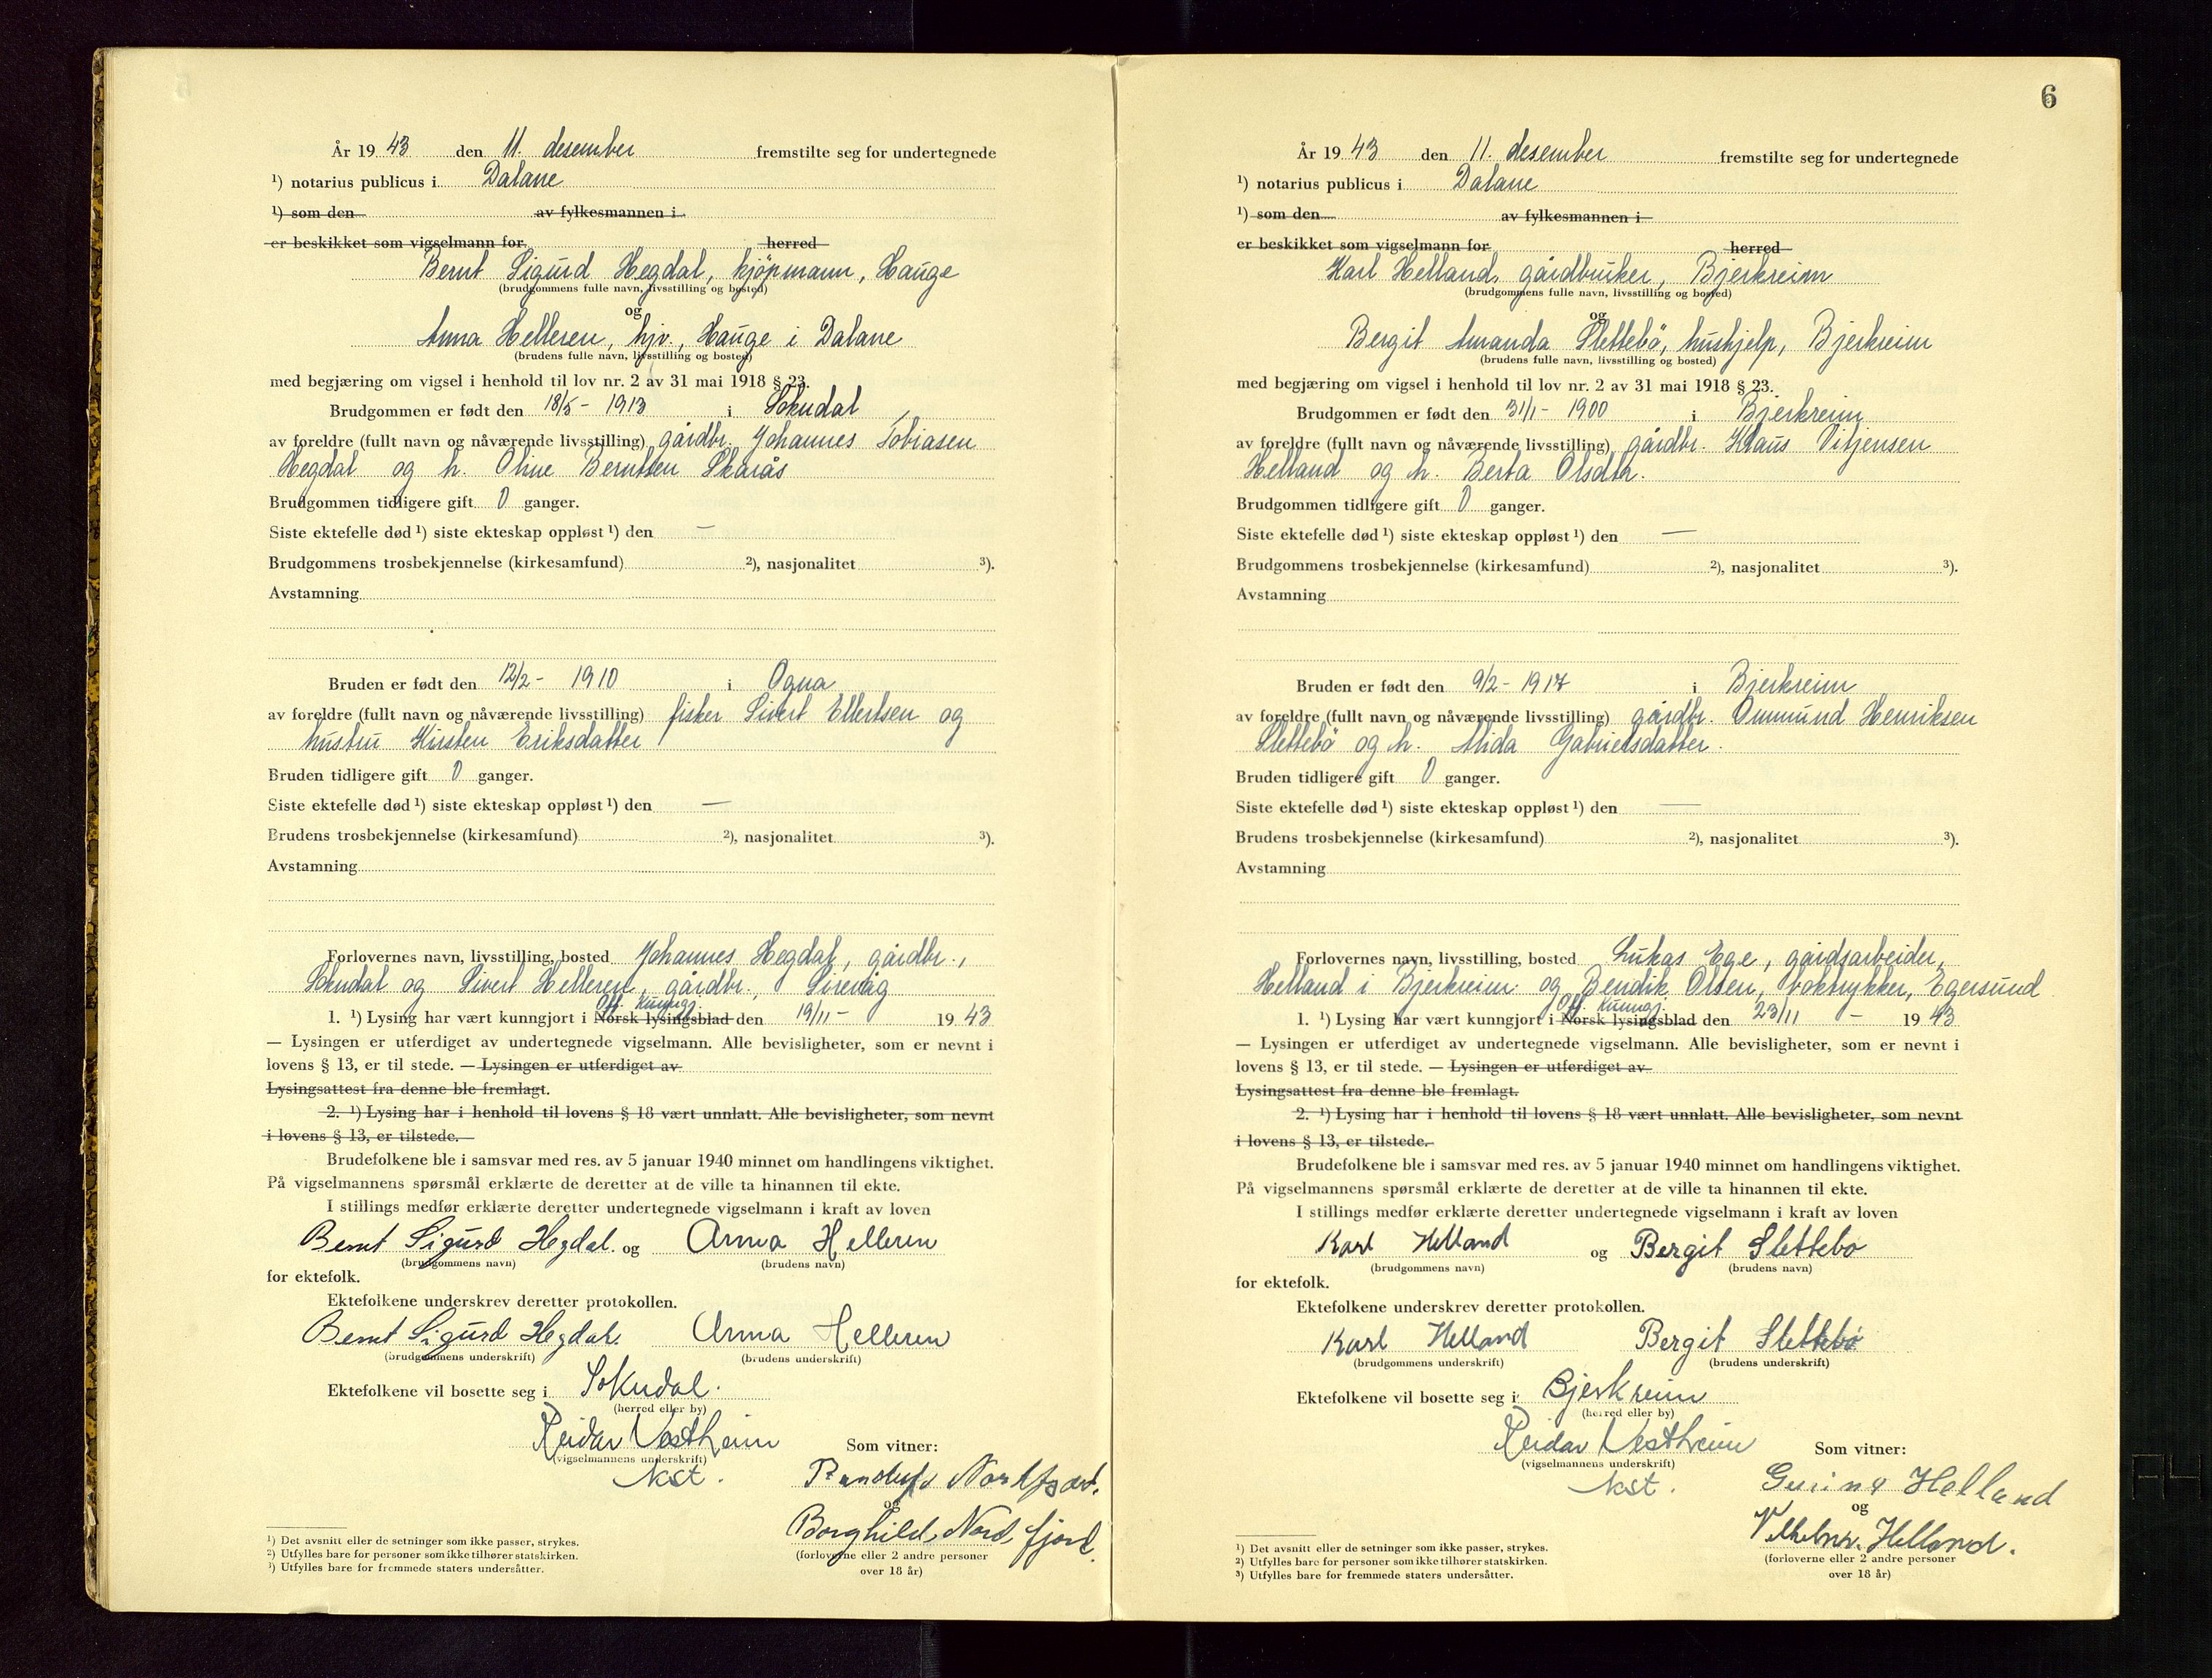 År 19 43 den 11. desember fremstilte seg for undertegnede
¹) notarius publicus i Dalane
¹) som den av fylkesmannen i
er beskikket som vigselmann for herred
Bernt Sigurd Hegdal, kjöpmann, Hauge
(brudgommens fulle navn, livsstilling og bosted)
og
Anna Helleren, hjv., Hauge i Dalane
(brudens fulle navn, livsstilling og bosted)
med begjæring om vigsel i henhold til lov nr. 2 av 31 mai 1918 § 23.
Brudgommen er født den 18/5 - 1913 i Sokndal
av foreldre (fullt navn og nåværende livsstilling) gårdbr. Johannes Tobiasen
Hegdal og h. Oline Berntsen Skarås
Brudgommen tidligere gift 0 ganger.
Siste ektefelle død ¹) siste ekteskap oppløst ¹) den —
Brudgommens trosbekjennelse (kirkesamfund) ²), nasjonalitet ³).
Avstamning
Bruden er født den 12/2 - 1910 i Ogna
av foreldre (fullt navn og nåværende livsstilling) fisker Sivert Ellertsen og
hustru Kirsten Eriksdatter
Bruden tidligere gift 0 ganger.
Siste ektefelle død ¹) siste ekteskap oppløst ¹) den —
Brudens trosbekjennelse (kirkesamfund) ²), nasjonalitet ³).
Avstamning
Forlovernes navn, livsstilling, bosted Johannes Hegdal, gårdbr.,
Sokndal og Sivert Helleren, gårdbr., Sirevåg
Off. Kunngj.
1. ¹) Lysing har vært kunngjort i Norsk lysingsblad den 19/11 - 19 43
— Lysingen er utferdiget av undertegnede vigselmann. Alle bevisligheter, som er nevnt i
lovens § 13, er til stede. — Lysingen er utferdiget av
Lysingsattest fra denne ble fremlagt.
2. ¹) Lysing har i henhold til lovens § 18 vært unnlatt. Alle bevisligheter, som nevnt
i lovens § 13, er tilstede.
Brudefolkene ble i samsvar med res. av 5 januar 1940 minnet om handlingens viktighet.
På vigselmannens spørsmål erklærte de deretter at de ville ta hinannen til ekte.
I stillings medfør erklærte deretter undertegnede vigselmann i kraft av loven
Bernt Sigurd Hegdal. og Anna Helleren
(brudgommens navn) (brudens navn)
for ektefolk.
Ektefolkene underskrev deretter protokollen.
Bernt Sigurd Hegdal. Anna Helleren
(brudgommens underskrift) (brudens underskrift)
Ektefolkene vil bosette seg i Sokndal.
(herred eller by)
Reidar Vestheim Som vitner:
(vigselmannens underskrift)
kst. Nordfjord.
og
Borghild Nordfjord.
(forloverne eller 2 andre personer
over 18 år)
¹) Det avsnitt eller de setninger som ikke passer, strykes.
²) Utfylles bare for personer som ikke tilhører statskirken.
³) Utfylles bare for fremmede staters undersåtter.
6
År 19 43 den 11. desember fremstilte seg for undertegnede
¹) notarius publicus i Dalane
¹) som den av fylkesmannen i
er beskikket som vigselmann for herred
Karl Helland, gårdbruker, Bjerkreim
(brudgommens fulle navn, livsstilling og bosted)
og
Bergit Amanda Slettebö, hushjelp, Bjerkreim
(brudens fulle navn, livsstilling og bosted)
med begjæring om vigsel i henhold til lov nr. 2 av 31 mai 1918 § 23.
Brudgommen er født den 31/1 - 1900 i Bjerkreim
av foreldre (fullt navn og nåværende livsstilling) gårdbr. Klaus Vitjensen
Helland og h. Berta Olsdtr.
Brudgommen tidligere gift 0 ganger.
Siste ektefelle død ¹) siste ekteskap oppløst ¹) den —
Brudgommens trosbekjennelse (kirkesamfund) ²), nasjonalitet ³).
Avstamning
Bruden er født den 9/2 - 1917 i Bjerkreim
av foreldre (fullt navn og nåværende livsstilling) gårdbr. Ommund Henriksen
Slettebö og h. Alida Gabrielsdatter.
Bruden tidligere gift 0 ganger.
Siste ektefelle død ¹) siste ekteskap oppløst ¹) den —
Brudens trosbekjennelse (kirkesamfund) ²), nasjonalitet ³).
Avstamning
Forlovernes navn, livsstilling, bosted Lukas Ege, gårdsarbeider,
Helland i Bjerkreim og Bendik Olsen, boktrykker, Egersund
Off. Kunngj.
1. ¹) Lysing har vært kunngjort i Norsk lysingsblad den 23/11 - 19 43
— Lysingen er utferdiget av undertegnede vigselmann. Alle bevisligheter, som er nevnt i
lovens § 13, er til stede. — Lysingen er utferdiget av
Lysingsattest fra denne ble fremlagt.
2. ¹) Lysing har i henhold til lovens § 18 vært unnlatt. Alle bevisligheter, som nevnt
i lovens § 13, er tilstede.
Brudefolkene ble i samsvar med res. av 5 januar 1940 minnet om handlingens viktighet.
På vigselmannens spørsmål erklærte de deretter at de ville ta hinannen til ekte.
I stillings medfør erklærte deretter undertegnede vigselmann i kraft av loven
Karl Helland og Bergit Slettebo
(brudgommens navn) (brudens navn)
for ektefolk.
Ektefolkene underskrev deretter protokollen.
Karl Helland Bergit Slettebø
(brudgommens underskrift) (brudens underskrift)
Ektefolkene vil bosette seg i Bjerkreim
(herred eller by)
Reidar Vestheim Som vitner:
(vigselmannens underskrift)
kst. Gurina Helland
og
Helland.
(forloverne eller 2 andre personer
over 18 år)
¹) Det avsnitt eller de setninger som ikke passer, strykes.
²) Utfylles bare for personer som ikke tilhører statskirken.
³) Utfylles bare for fremmede staters undersåtter.